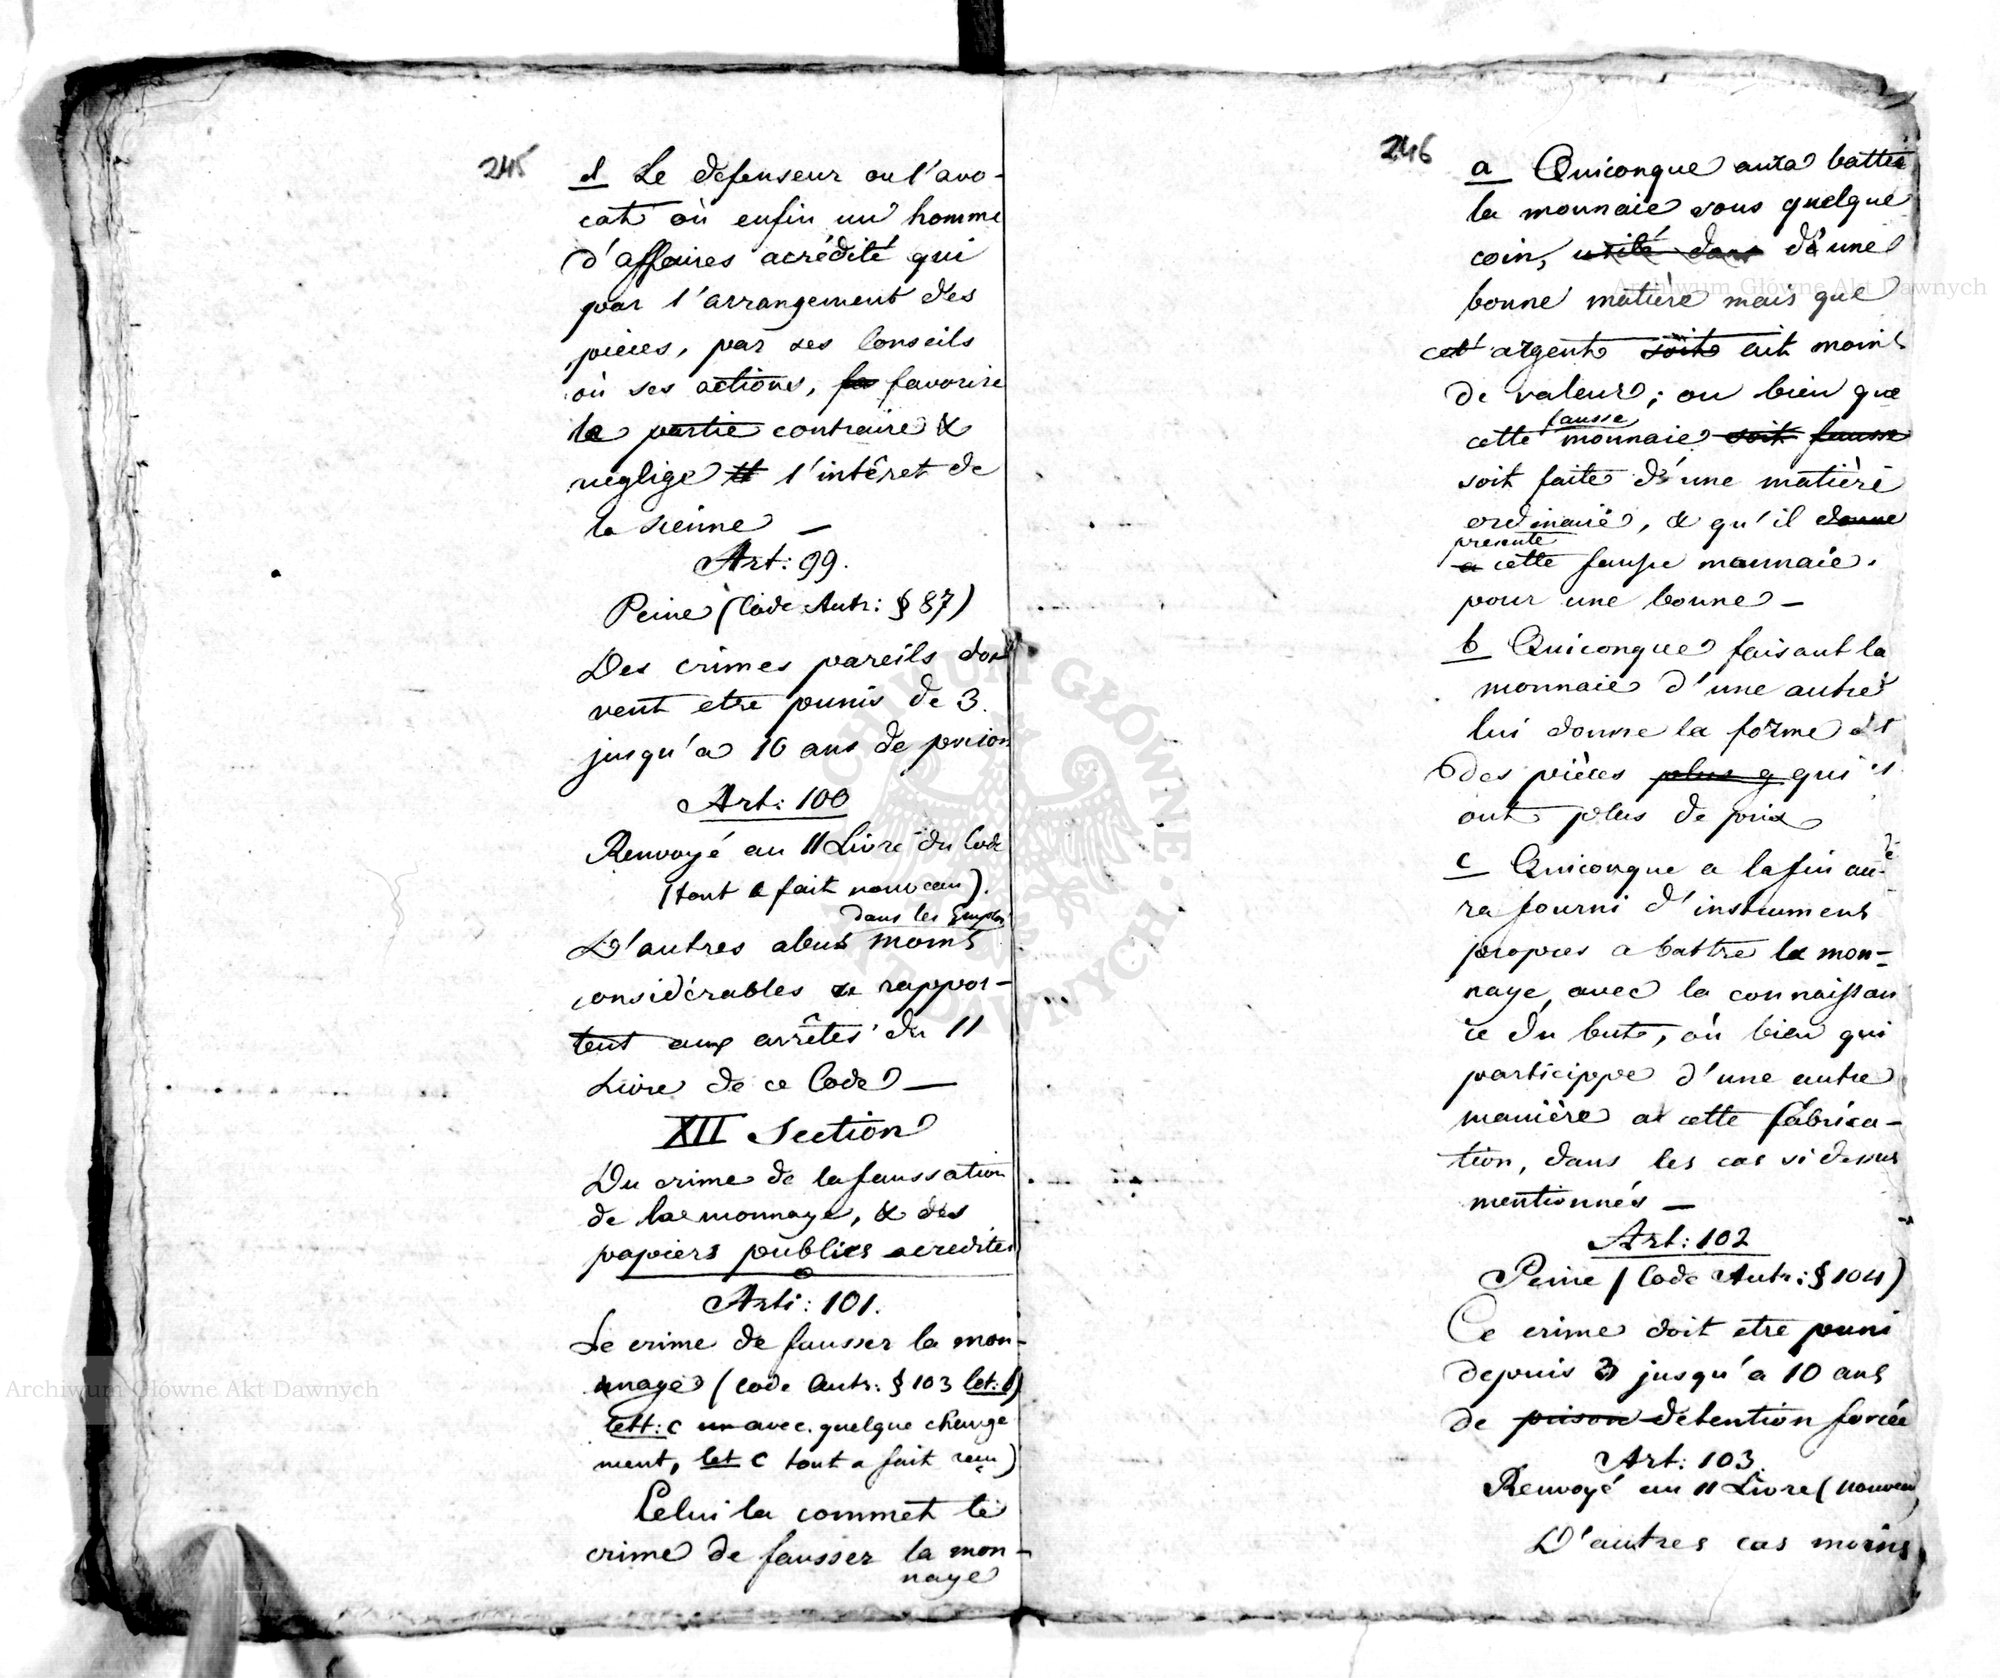 245
d Le defenseur ou l'avo-
cat où enfin un homme
d'affaires acrédité qui
par l'arrangement des
pièces, par ses Conseils
où ses actions, favorise
le partie contraire &
neglige l'intêret de
la sienne —
Art: 99.
Peine (Code Autr: § 87)
Des crimes pareils doi
vent etre punis de 3.
jusqu'a 10 ans de prison
Art: 100
Renvoyé au II Livre du Code
(tout a fait nouveau).
dans les Emplois
D'autres abus moins
considérables se rappor-
tent aux arrêtés du II
Livre de ce Code —
XII Section
Du crime de la faussation
de la monnaye, & des
papiers publics acredités
Arti: 101.
Le crime de fausser la mon-
nnaye (Code Autr: § 103 let: b)
lett: c un avec quelque change
ment, let C tout a fait
Celui la commet le
crime de fausser la mon-
naye
246
a Quiconque aura battu
la monnaie sous quelque
coin, usité dans d'une
bonne matière mais que
cet argent soit ait moins
de valeur; ou bien que
fausse
cette monnaie soit fausse
soit faite d'une matière
ordinaire, & qu'il donne
presente
a cette fausse monnaie.
pour une bonne —
b Quiconque faisant la
monnaie d'une autre
lui donne la forme
des pièces plus q qui
ont plus de prix
c Quiconque a la fin au-
ra fourni d'instrumens
propres a battre la mon-
naye, avec la connaissan
ce du bute, où bien qui
particippe d'une autre
manière a cette fabrica-
tion, dans les cas si dessus
mentionnés —
Art: 102
Peine (Code Autr: § 104)
Ce crime doit etre puni
depuis 3 jusqu'a 10 ans
de prison detention forcée
Art: 103.
Renvoyé au II Livre (nouveau
D'autres cas moins
Archiwum Główne Akt Dawnych
Archiwum Główne Akt Dawnych
ARCHIWUM GŁÓWNE AKT DAWNYCH